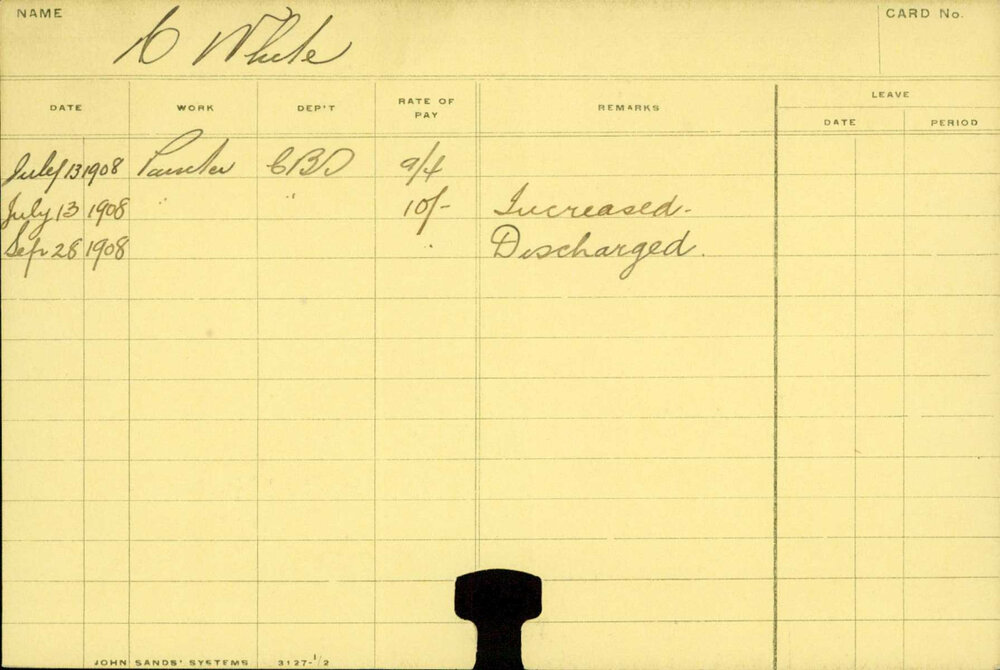 NAME
CARD No.
White
DATE WORK DEP'T RATE OF PAY REMARKS LEAVE
DATE PERIOD
July 13 1908 Painter CBD 9/4
July 13 1908 " " 10/- Increased.
Sep 28 1908 " Discharged.
JOHN SANDS' SYSTEMS 3127-1/2